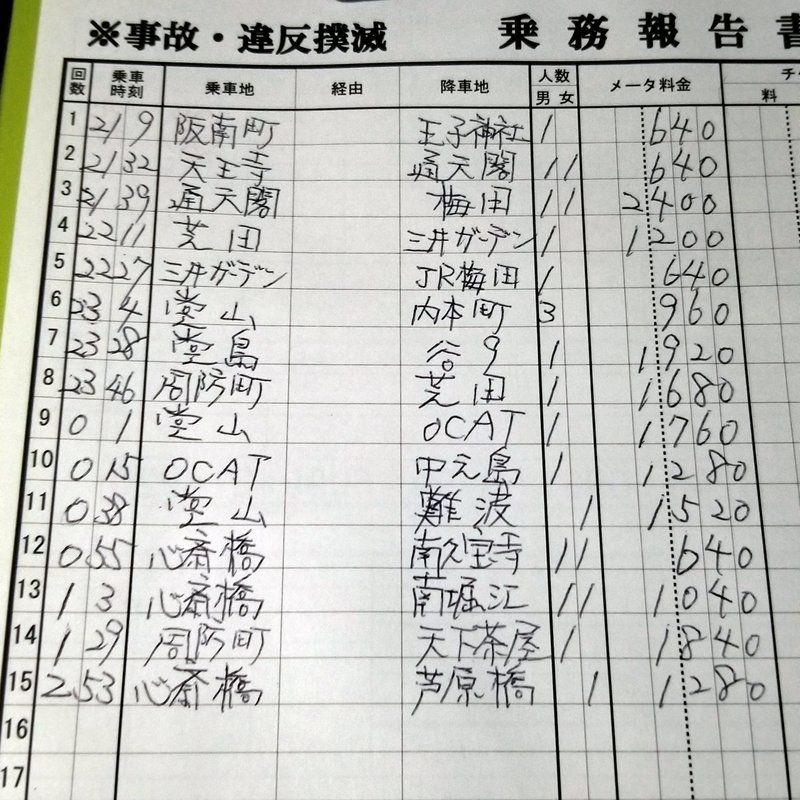 ※事故・違反撲滅 乗務報告書
回数 乗車時刻 乗車地 経由 降車地 人数 男 女 メータ料金 料
1 21 9 阪南町 王子神社 1 640
2 21 32 天王寺 通天閣 1 1 640
3 21 39 通天閣 梅田 1 1 2400
4 22 11 芝田 三井ガーデン 1 1200
5 22 27 三井ガーデン JR梅田 1 640
6 23 4 堂山 内本町 3 960
7 23 28 堂島 谷9 1 1920
8 23 46 周防町 芝田 1 1680
9 0 1 堂山 OCAT 1 1760
10 0 15 OCAT 中之島 1 1280
11 0 38 堂山 難波 1 1520
12 0 55 心斎橋 南久宝寺 1 1 640
13 1 3 心斎橋 南堀江 1 1 1040
14 1 29 周防町 天下茶屋 1 1840
15 2 53 心斎橋 芦原橋 1 1280
16
17